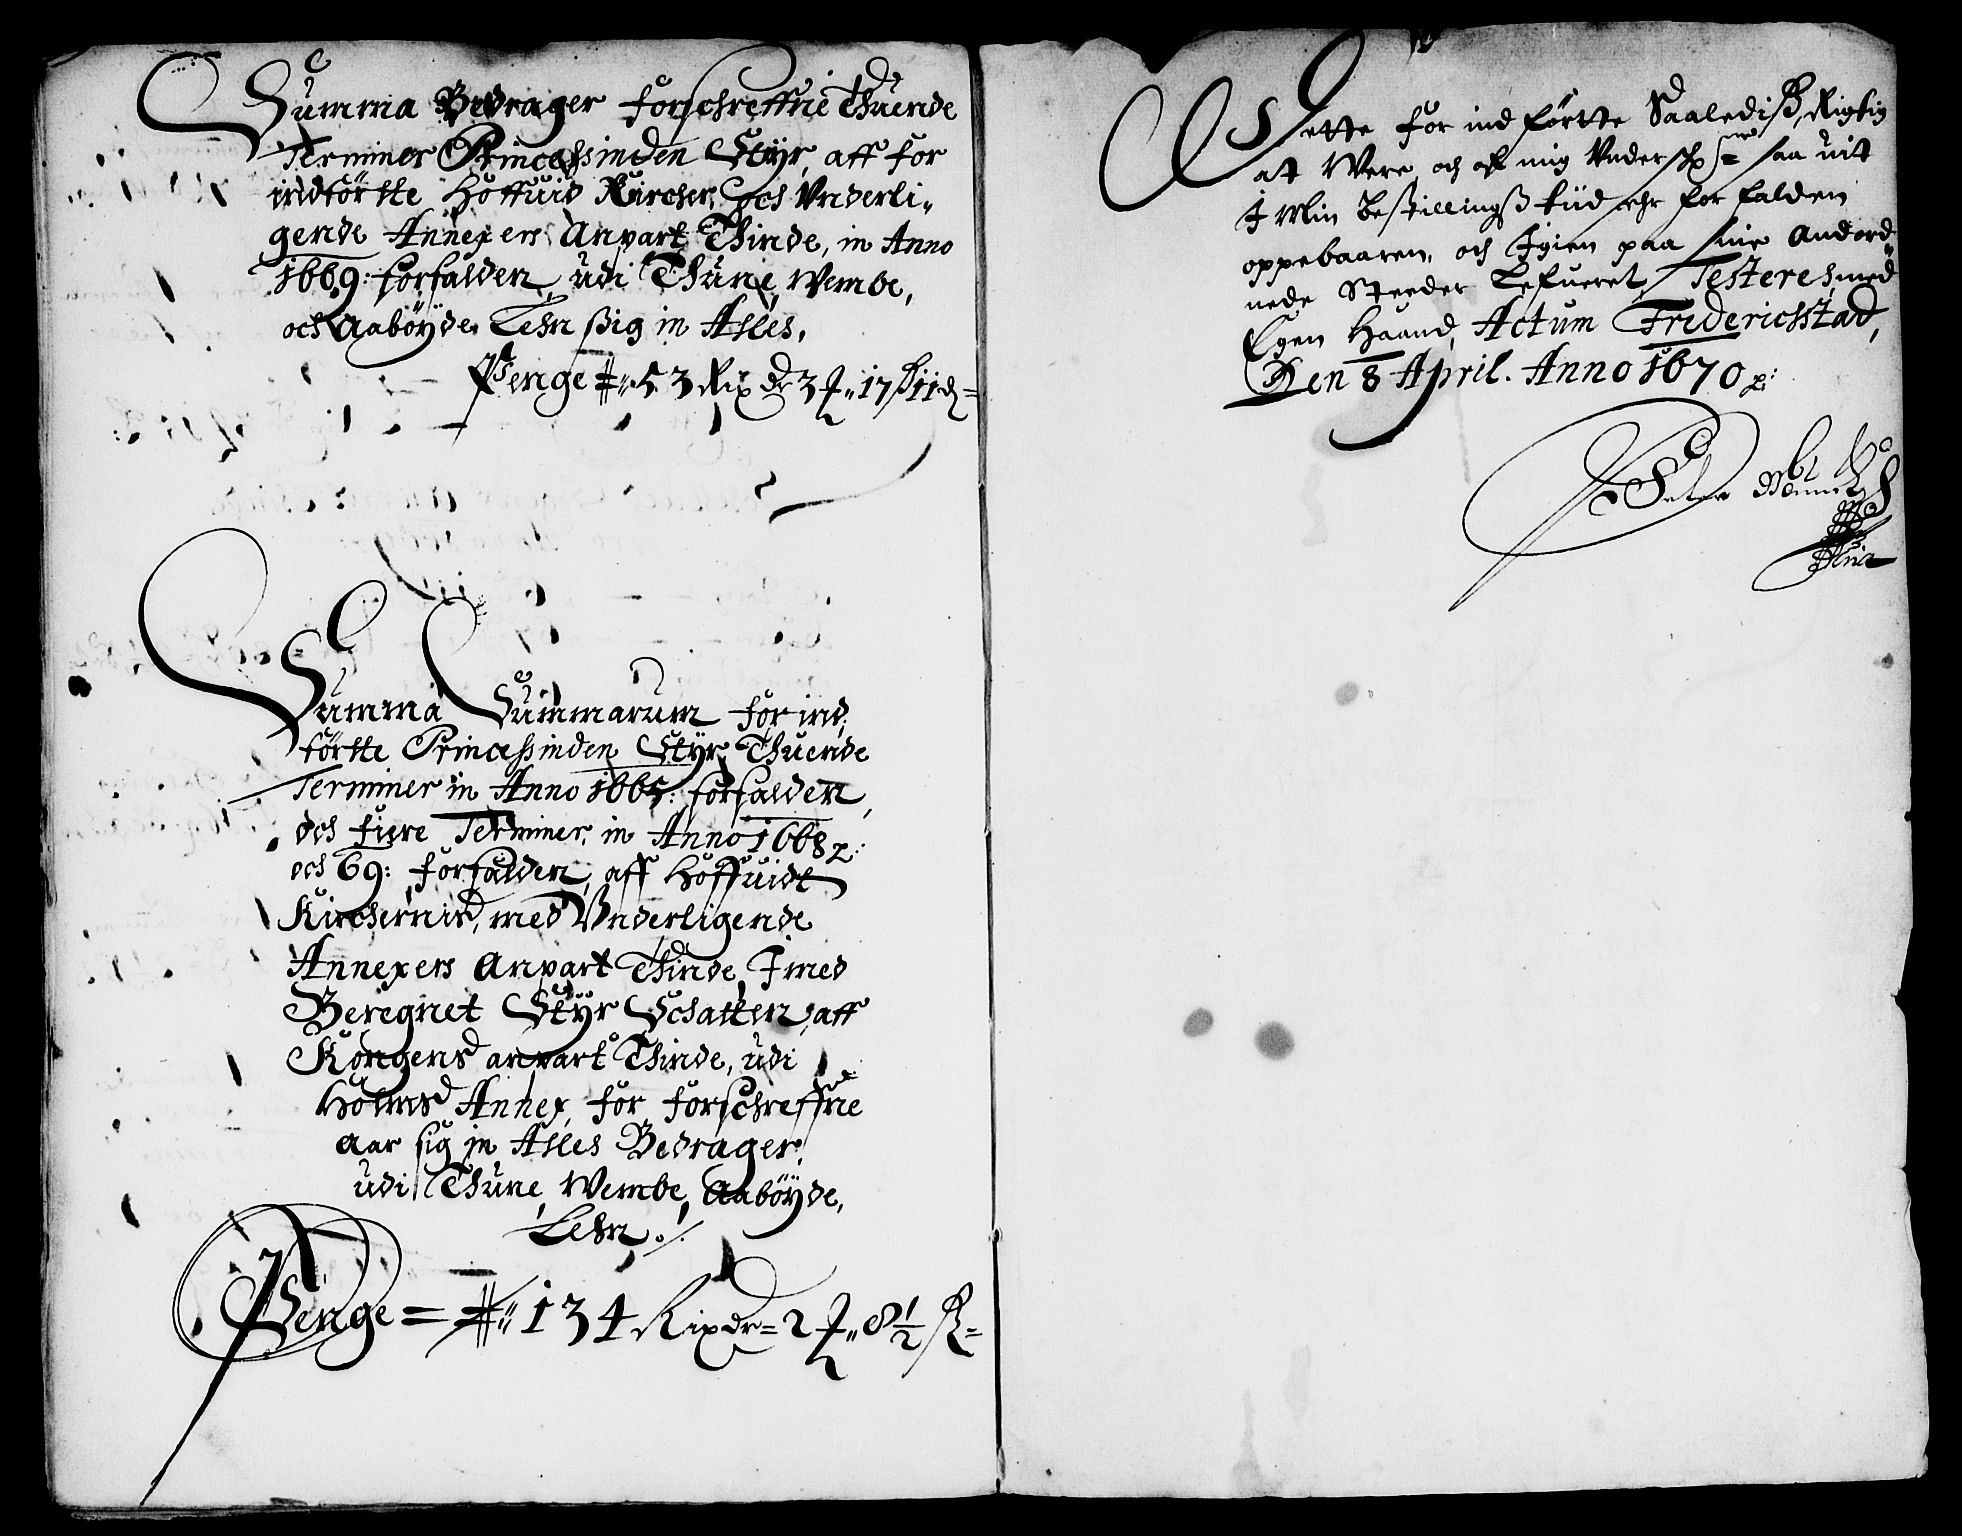 Summa Bedrager forschreffne Thuende
Terminer Princessinden Styr, aff for
indförtte Höffuid Kircher, och Vnderli,,
gende Annexers Anpart Thinde, in Anno
1669: forfalden udi Thune, Wembe,
och Aaböyde Lehn ßig in Alles,
Penge 53 Rixdr 3 17 ß 11
Summa Summarum for ind:
förtte Princessinden Styr Thuende
Terminer in Anno 1665: forfalden,
och fiere Terminer, in Anno 1668
och 69: forfalden, aff Höffuidt
Kirchernis, med Vnderligende
Annexers Anpart Thinde, Imed
Beregnet Styr Schatten, aff
Kongens anpart Thinde, udi
Holms Annex, for forschreffne
aar sig in Alles Bedrager,
udi Thune, Wembe, Aaböyde,
Lehn ./.
Penge = 134 Rixdr = 2 8½ ß =
Dette for ind förtte Saalediß, Rigtig
at Were, och aff mig Vndersch saa uit
I Min Bestillingß tiid ehr for falden
oppebaaren, och Igien paa sine Anord
nede Steeder Lefueret, Testeres med
Egen Haand, Actum Friderichstad,
Den 8 April. Anno 1670
Peter